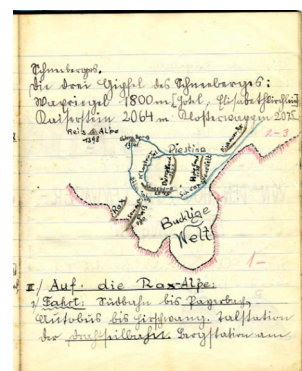 Schneeberges.
Die drei Gipfel des Schneeberges:
Waxriegel 1800m [Hotel, Elisabethkirchlein]
Kaiserstein 2061m Klosterwappen 2075
Reis Alpe
1398
Piestina
2-3
Rax
Bucklige
Welt
1-
II/ Auf die Rax-Alpe:
1/ Fahrt: Südbahn bis Payerbach,
Autobus bis Hirschwang. Talstation
der Drahtseilbahn. Bergstation am